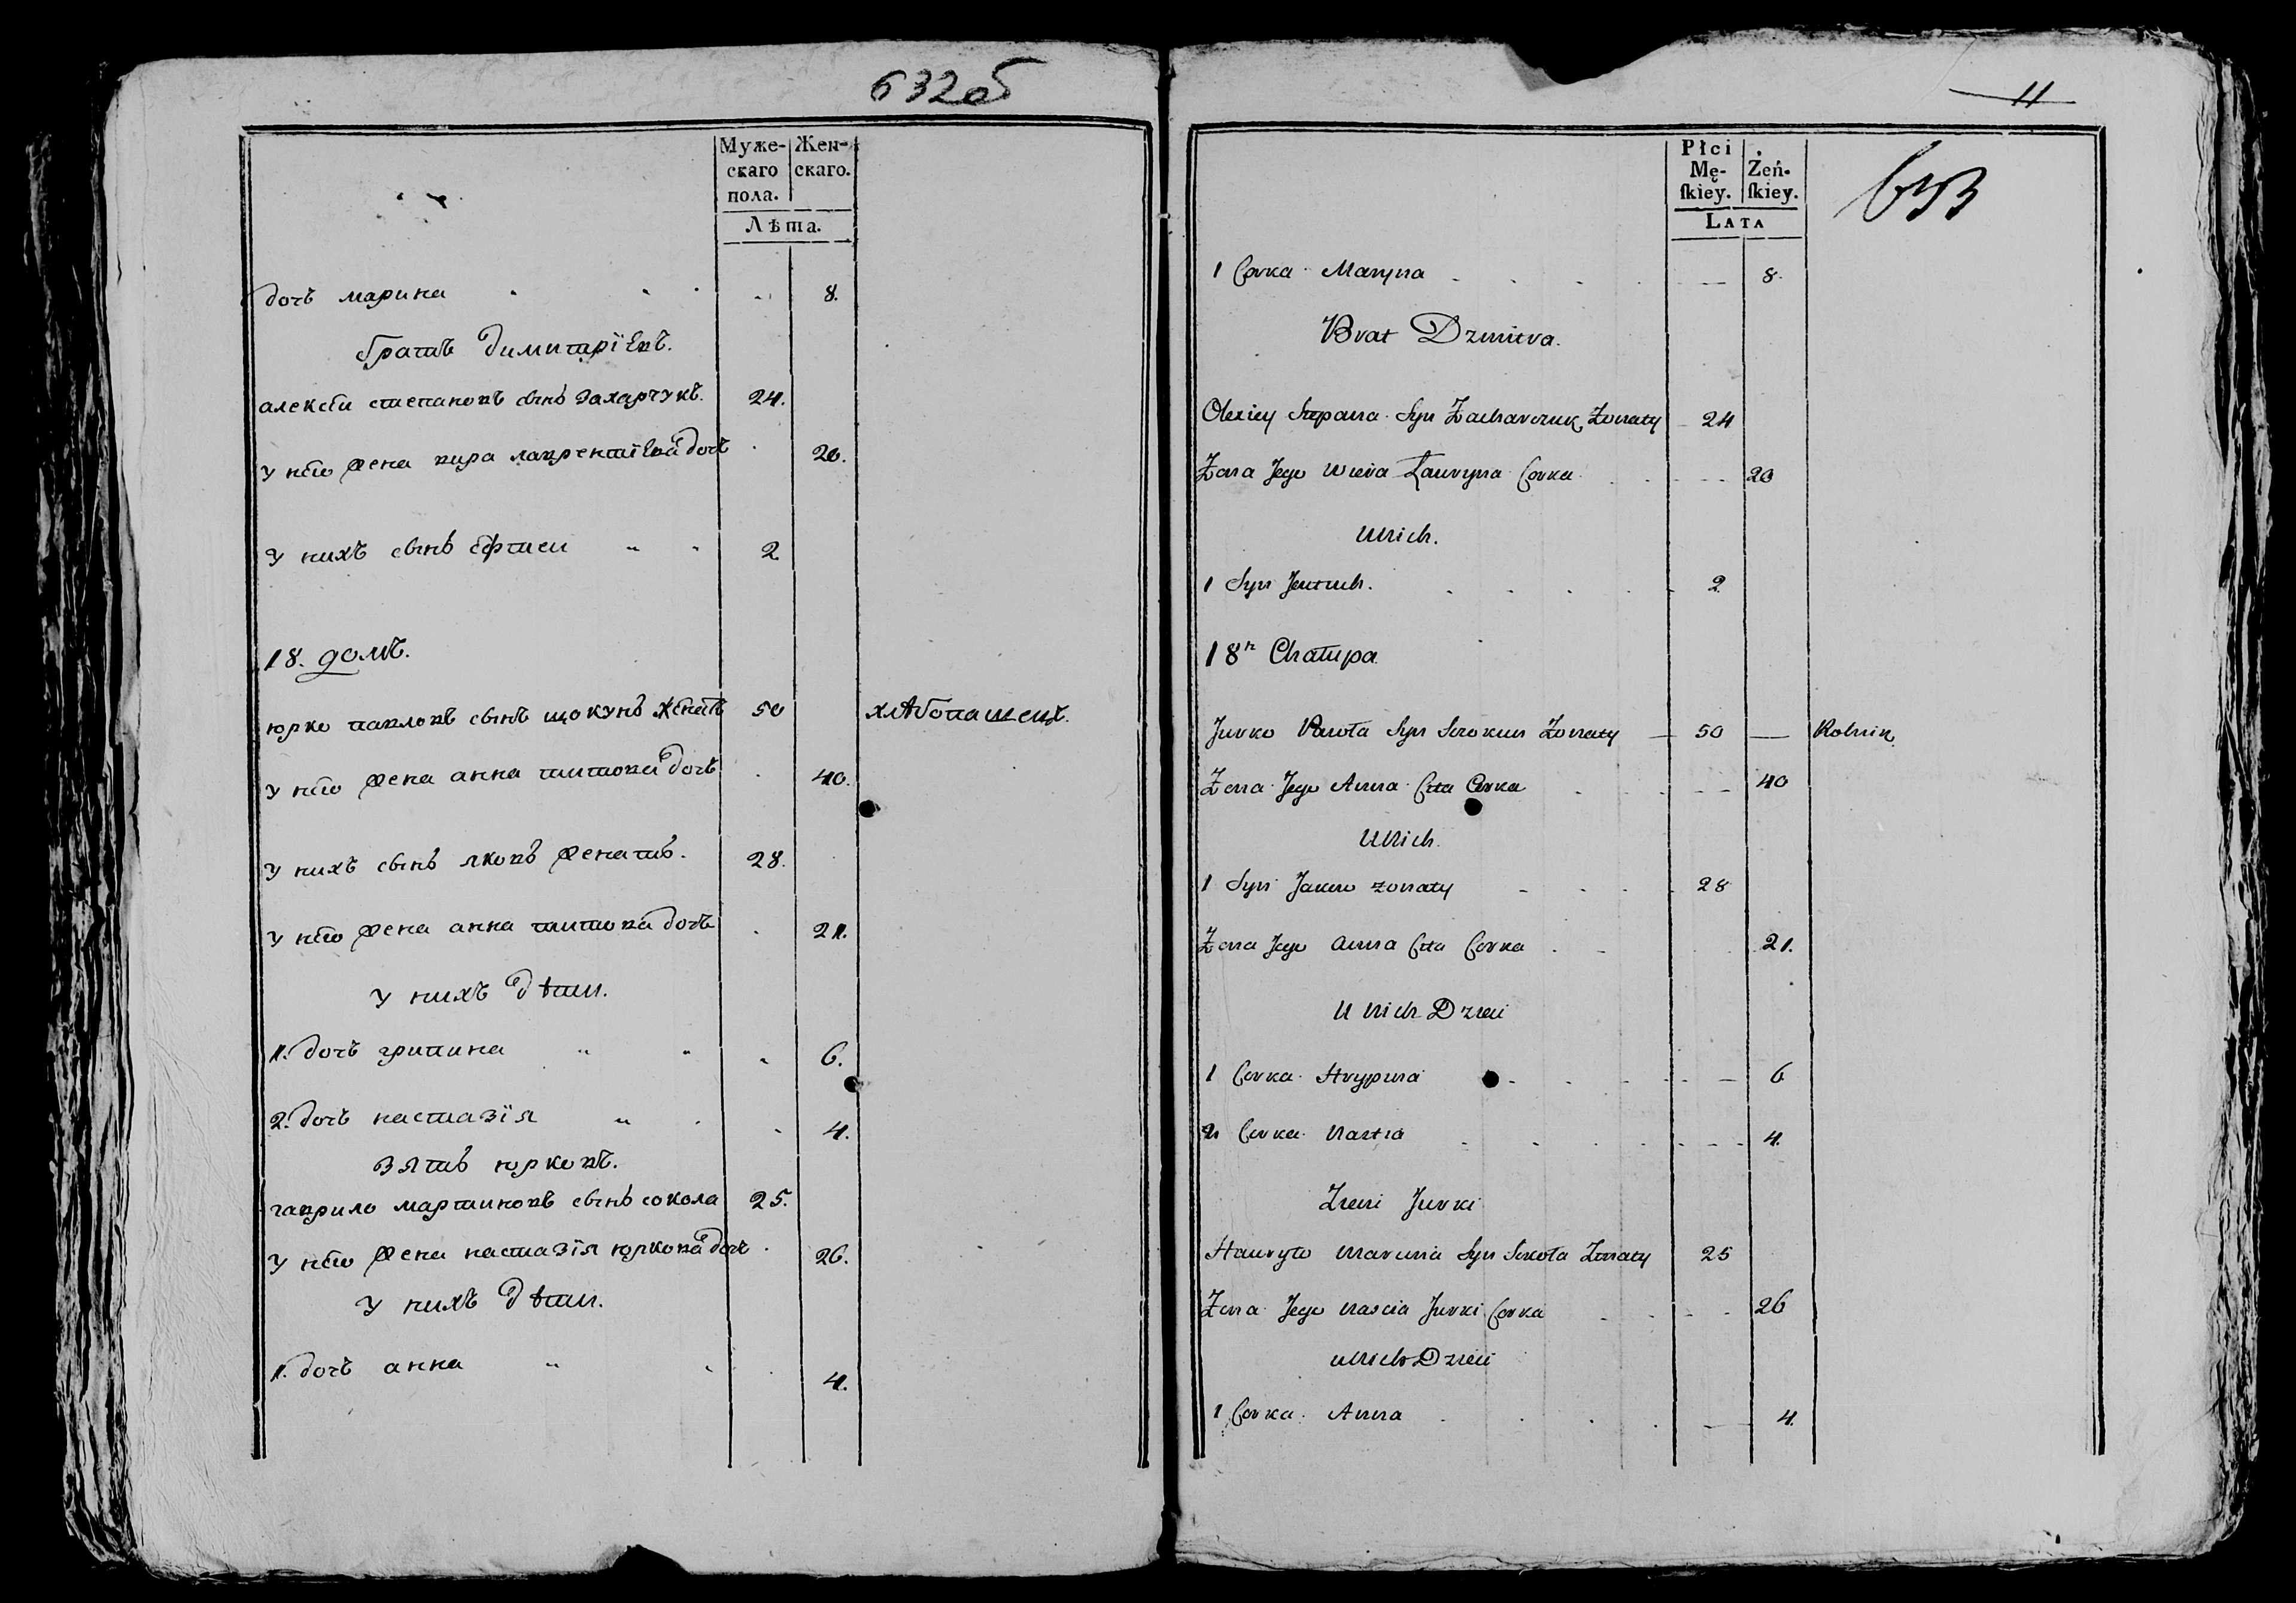 632об
Муже-
скаго
пола.
Жен-
скаго.
Лѣта.
дочъ марина 8.
братъ димитріевъ.
алексѣи степановъ сынъ захарчукъ. 24.
у него жена вира лаврентіева дочъ 20.
у нихъ сынъ ефтеи 2
18. домъ.
юрко павловъ сынъ щокунъ женатъ 50 хлѣбопашецъ.
у него жена анна титова дочъ 40.
у нихъ сынъ яковъ женатъ. 28.
у него жена анна титова дочъ 21.
у нихъ дѣти.
1. дочъ грипина 6.
2. дочъ настазія 4.
зять юрковъ.
гаврило мартиновъ сынъ сокола 25.
у него жена настазія юркова дочъ 26.
у нихъ дѣти.
1. дочъ анна 4.
11
633
Płci
Mę-
ſkiey.
Żeń-
ſkiey.
Lata
1 Corka Maryna 8.
Brat Dzmitra.
Olexiey Stepana Syn Zacharczuk Zonaty 24
Zona Jego Wiera Ławryna Corka 20
U nich.
1 Syn 2
18ta Chałupa
Jurko Pawła Syn Szokun Zonaty 50 Rolnik
Zona Jego Anna Cita Corka 40
U Nich
1 Syn Jakow zonaty 28
Zona Jego Anna Cita Corka 21.
U nich Dzieci
1 Corka Hrypina 6
2 Corka Nasta 4.
Zienc Jurki
Hawryło Marcina Syn Sokoła Zonaty 25
Zona Jego Nascia Jurki Corka 26
u nich Dzieci
1 Corka Anna 4.